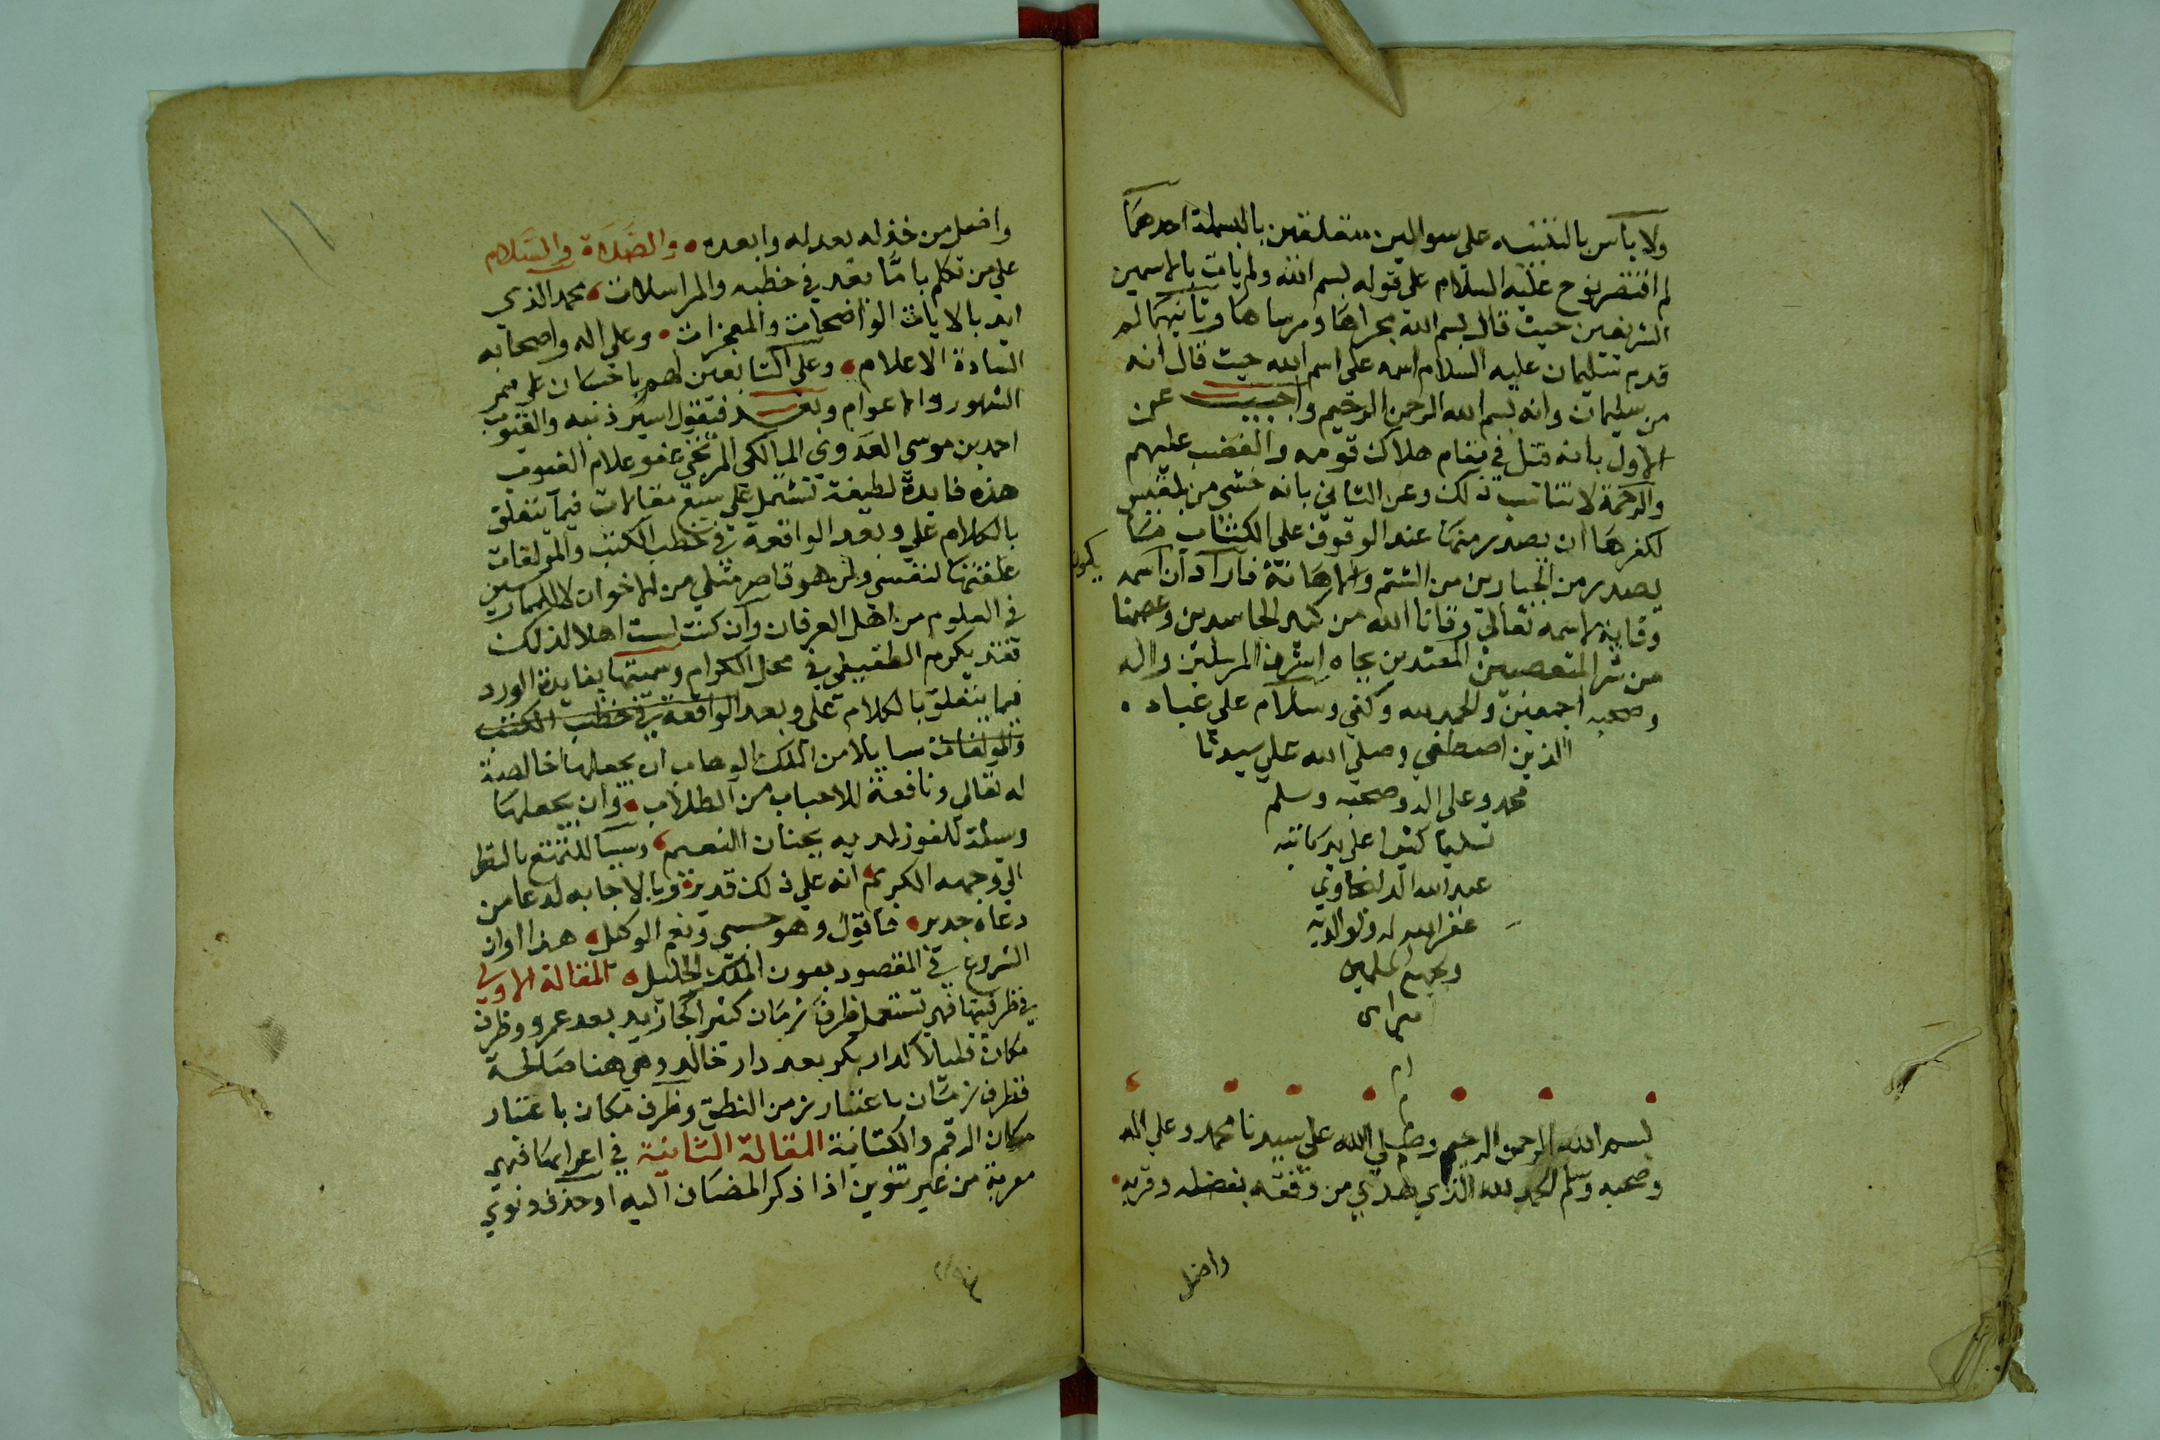 ولا باس بالتنبيه علي سوالين متعلقين بالبسملة احدهما
لم اقتصر نوح عليه السلام على قوله بسم الله ولم يات بالاسمين
الشريفين حيث قال بسم الله مجراها ومرساها وثانيهما لم
قدم سليمان عليه السلام اسمه على اسم الله حيث قال انه
من سليمان وانه بسم الله الرحمن الرحيم واجيب عن
الاول بانه قيل في مقام هلاك قومه والغضب عليهم
والرحمة لا تناسب ذلك وعن الثاني بانه خشي من بلقيس
لكفرها ان يصدر منها عند الوقوف على الكتاب مما
يصدر من الجبارين من الشتم والاهانة فاراد ان اسمه
يكون
وقاية لاسمه تعالى وقانا الله من كيد الحاسدين وعصمنا
من شر المتعصبين المعتدين بجاه اشرف المرسلين واله
وصحبه اجمعين والحمد لله وكفي وسلام علي عباده
الذين اصطفي وصلي الله علي سيدنا
محمد وعلى اله وصحبه وسلم
تسليما كثيرا على يد كاتبه
عبد الله الدلنجاوي
غفر الله له ولوالديه
وجميع المسلمين
امين
بسم الله الرحمن الرحيم وصلي الله على سيدنا محمد وعلي اله
وصحبه وسلم الحمد لله الذي هدي من وفقه بفضله وقربه
واضل
واضل من خذله بعدله وابعده والصلاة والسلام
علي من تكلم باما بعد في خطبه والمراسلات محمد الذي
ايد بالايات الواضحات والمعجزات وعلي اله واصحابه
السادة الاعلام وعلى التابعين لهم باحسان على ممر
الشهور والاعوام وبعد فيقول اسير ذنبه والعيوب
احمد بن موسى العدوي المالكي المرتجي عفو علام الغيوب
هذه فايدة لطيفة تشتمل علي سبع مقالات فيما يتعلق
بالكلام علي وبعد الواقعة في خطب الكتب والمولفات
علقتها لنفسي ولمن هو قاصر مثلي من الاخوان لا للممارسين
في العلوم من اهل العرفان وان كنت لست اهلا لذلك
فقد يكرم الطفيلي في محل الكرام وسميتها بفايدة الورد
فيما يتعلق بالكلام علي وبعد الواقعة في خطب الكتب
والمولفات سايلا من الملك الوهاب ان يجعلها خالصة
له تعالي ونافعة للاحباب من الطلاب وان يجعلها
وسيلة للفوز لديه بجنان النعيم وسببا للتمتع بالنظر
الي وجهه الكريم انه علي ذلك قدير وبالاجابه لدعا من
دعاه جدير فاقول وهو حسبي ونعم الوكيل هذا اوان
الشروع في المقصود بعون الملك الجليل المقالة الاولي
في ظرفيتها فهي تستعمل ظرف زمان كثيرا كجا زيد بعد عمرو وظرف
مكان قليلا كدار بكر بعد دار خالد وهي هنا صالحة
فظرف زمان باعتبار زمن النطق وظرف مكان باعتبار
مكان الرقم والكتابة المقالة الثانية في اعرابها فهي
معربة من غير تنوين اذا ذكر المضاف اليه او حذف ونوي